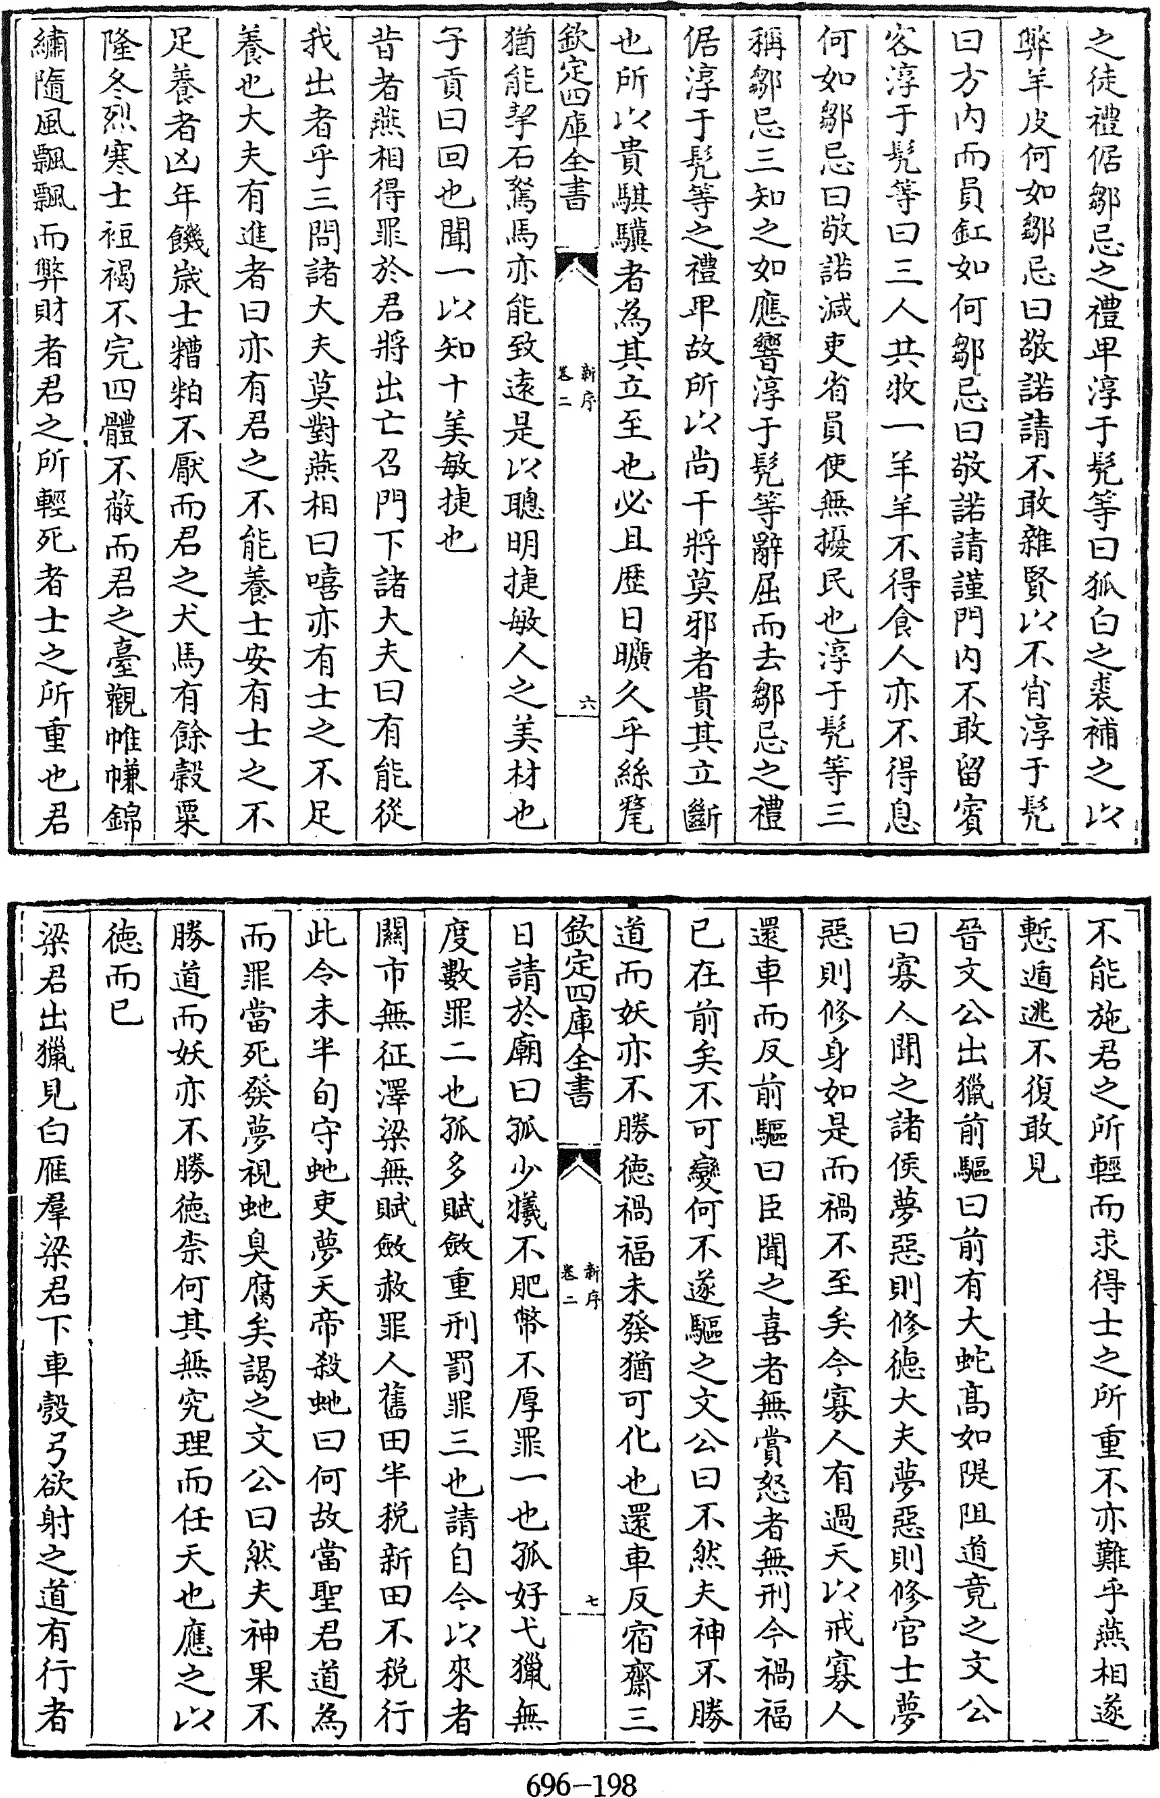 之徒禮倨鄒忌之禮卑淳于髡等曰狐白之裘補之以
弊羊皮何如鄒忌曰敬諾請不敢雜賢以不肖淳于髡
曰方内而員釭如何鄒忌曰敬諾請謹門内不敢留賓
客淳于髡等曰三人共牧一羊羊不得食人亦不得息
何如鄒忌曰敬諾減吏省員使無擾民也淳于髡等三
稱鄒忌三知之如應響淳于髡等辭屈而去鄒忌之禮
倨淳于髡等之禮卑故所以尚干將莫邪者貴其立斷
也所以貴騏驥者為其立至也必且歴日曠久乎絲氂
欽定四庫全書
新序
卷二
六
猶能挈石駑馬亦能致逺是以聰明捷敏人之美材也
子貢曰回也聞一以知十美敏捷也
昔者燕相得罪於君將出亡召門下諸大夫曰有能從
我出者乎三問諸大夫莫對燕相曰嘻亦有士之不足
養也大夫有進者曰亦有君之不能養士安有士之不
足養者凶年饑歳士糟粕不厭而君之犬馬有餘榖粟
隆冬烈寒士裋褐不完四體不蔽而君之臺觀帷㡘錦
繡隨風飄飄而弊財者君之所輕死者士之所重也君
不能施君之所輕而求得士之所重不亦難乎燕相遂
慙遁逃不復敢見
晉文公出獵前驅曰前有大蛇髙如隄阻道竟之文公
曰寡人聞之諸侯夢惡則修徳大夫夢惡則修官士夢
惡則修身如是而禍不至矣今寡人有過天以戒寡人
還車而反前驅曰臣聞之喜者無賞怒者無刑今禍福
已在前矣不可變何不遂驅之文公曰不然夫神不勝
道而妖亦不勝徳禍福未發猶可化也還車反宿齋三
欽定四庫全書
新序
卷二
七
日請於廟曰孤少犧不肥幣不厚罪一也孤好弋獵無
度數罪二也孤多賦斂重刑罰罪三也請自今以來者
關市無征澤梁無賦斂赦罪人舊田半税新田不税行
此令未半旬守虵吏夢天帝殺虵曰何故當聖君道為
而罪當死發夢視虵臭腐矣謁之文公曰然夫神果不
勝道而妖亦不勝徳柰何其無究理而任天也應之以
徳而已
梁君出獵見白雁羣梁君下車彀弓欲射之道有行者
696-198